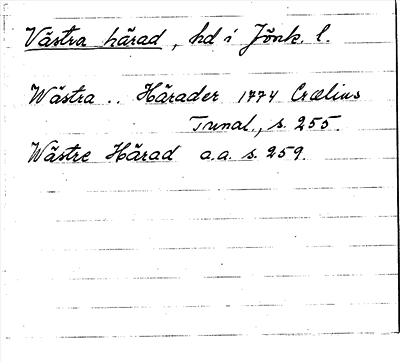 Västra härad, hd i Jönk. l.
Wästra .. Härader 1774 Crælius
Tunal., s. 255.
Wästre Härad a.a. s. 259.